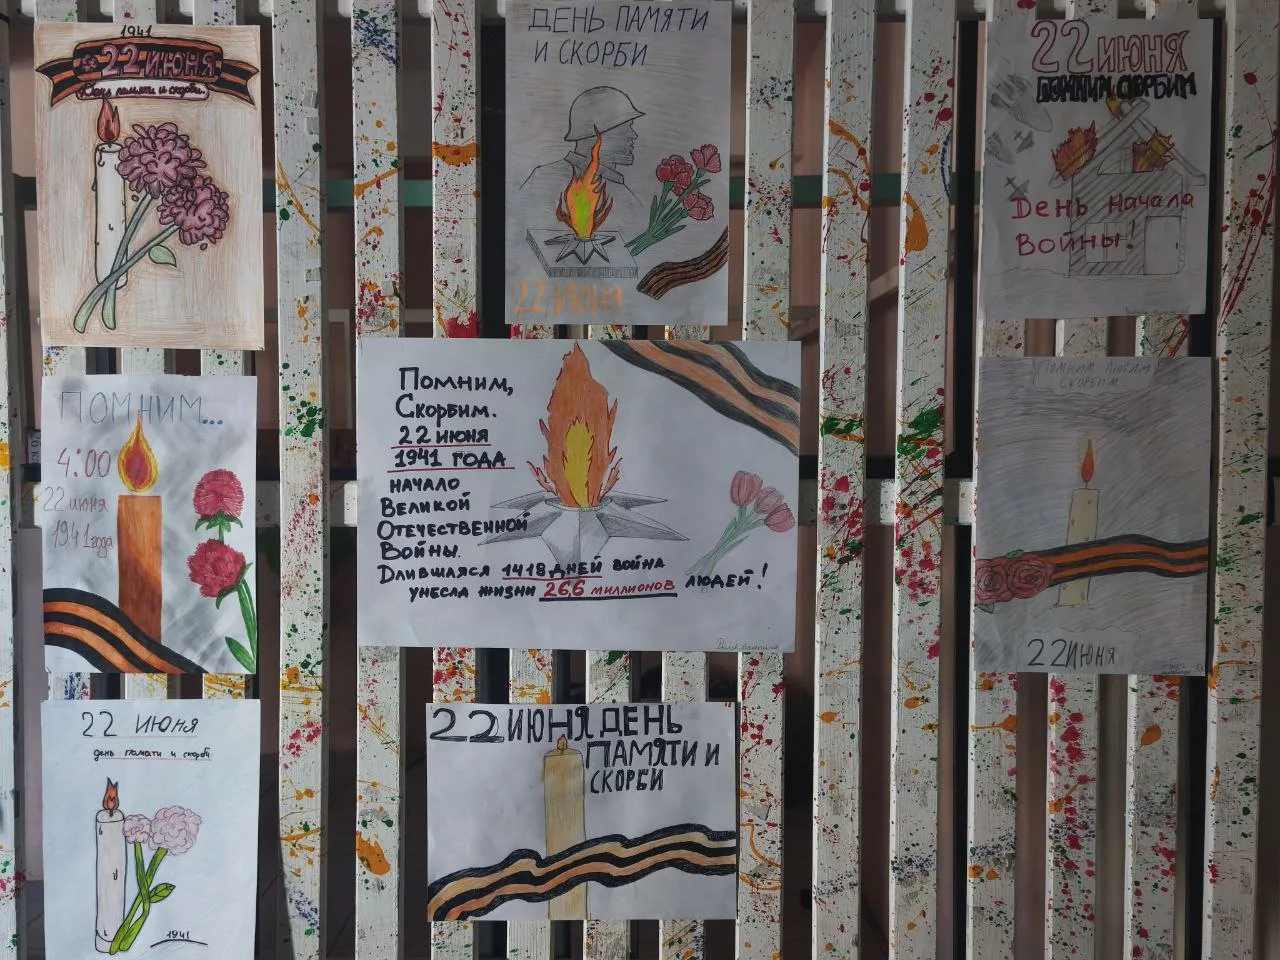 1941
22 ИЮНЯ
День памяти и скорби.
ДЕНЬ ПАМЯТИ
И СКОРБИ
22 ИЮНЯ
22 ИЮНЯ
ПОМНИМ СКОРБИМ
День начала
войны!
ПОМНИМ...
4:00
22 июня
1941 года
Помним,
Скорбим.
22 июня
1941 года
начало
Великой
Отечественной
Войны.
Длившаяся 1418 дней война
унесла жизни 26,6 миллионов людей!
ПОМНИМ ЛЮБИМ
СКОРБИМ
22 ИЮНЯ
22 ИЮНЯ
день памяти и скорби
1941
22 ИЮНЯ ДЕНЬ
ПАМЯТИ И
СКОРБИ